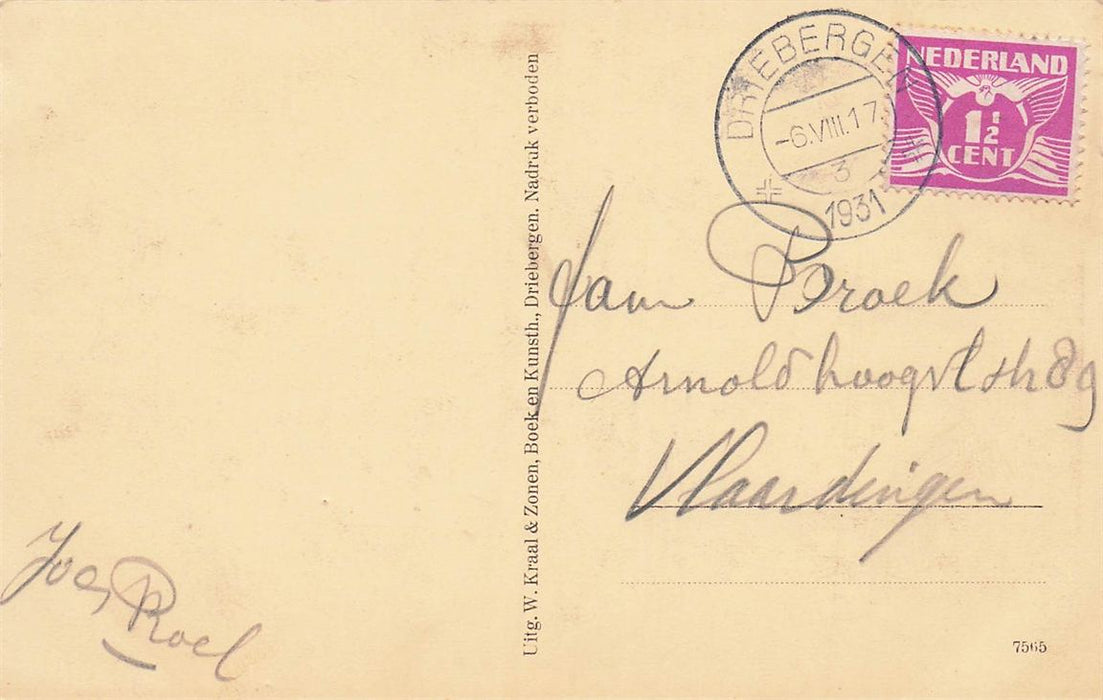 DRIEBERGEN
-6.VIII.17
3
1931
NEDERLAND
1 1/2
CENT
Jam Broek
Arnold hoogvl str 89
Vlaardingen
Uitg. W. Kraal & Zonen, Boek en Kunsth., Driebergen. Nadruk verboden
Roel
7565